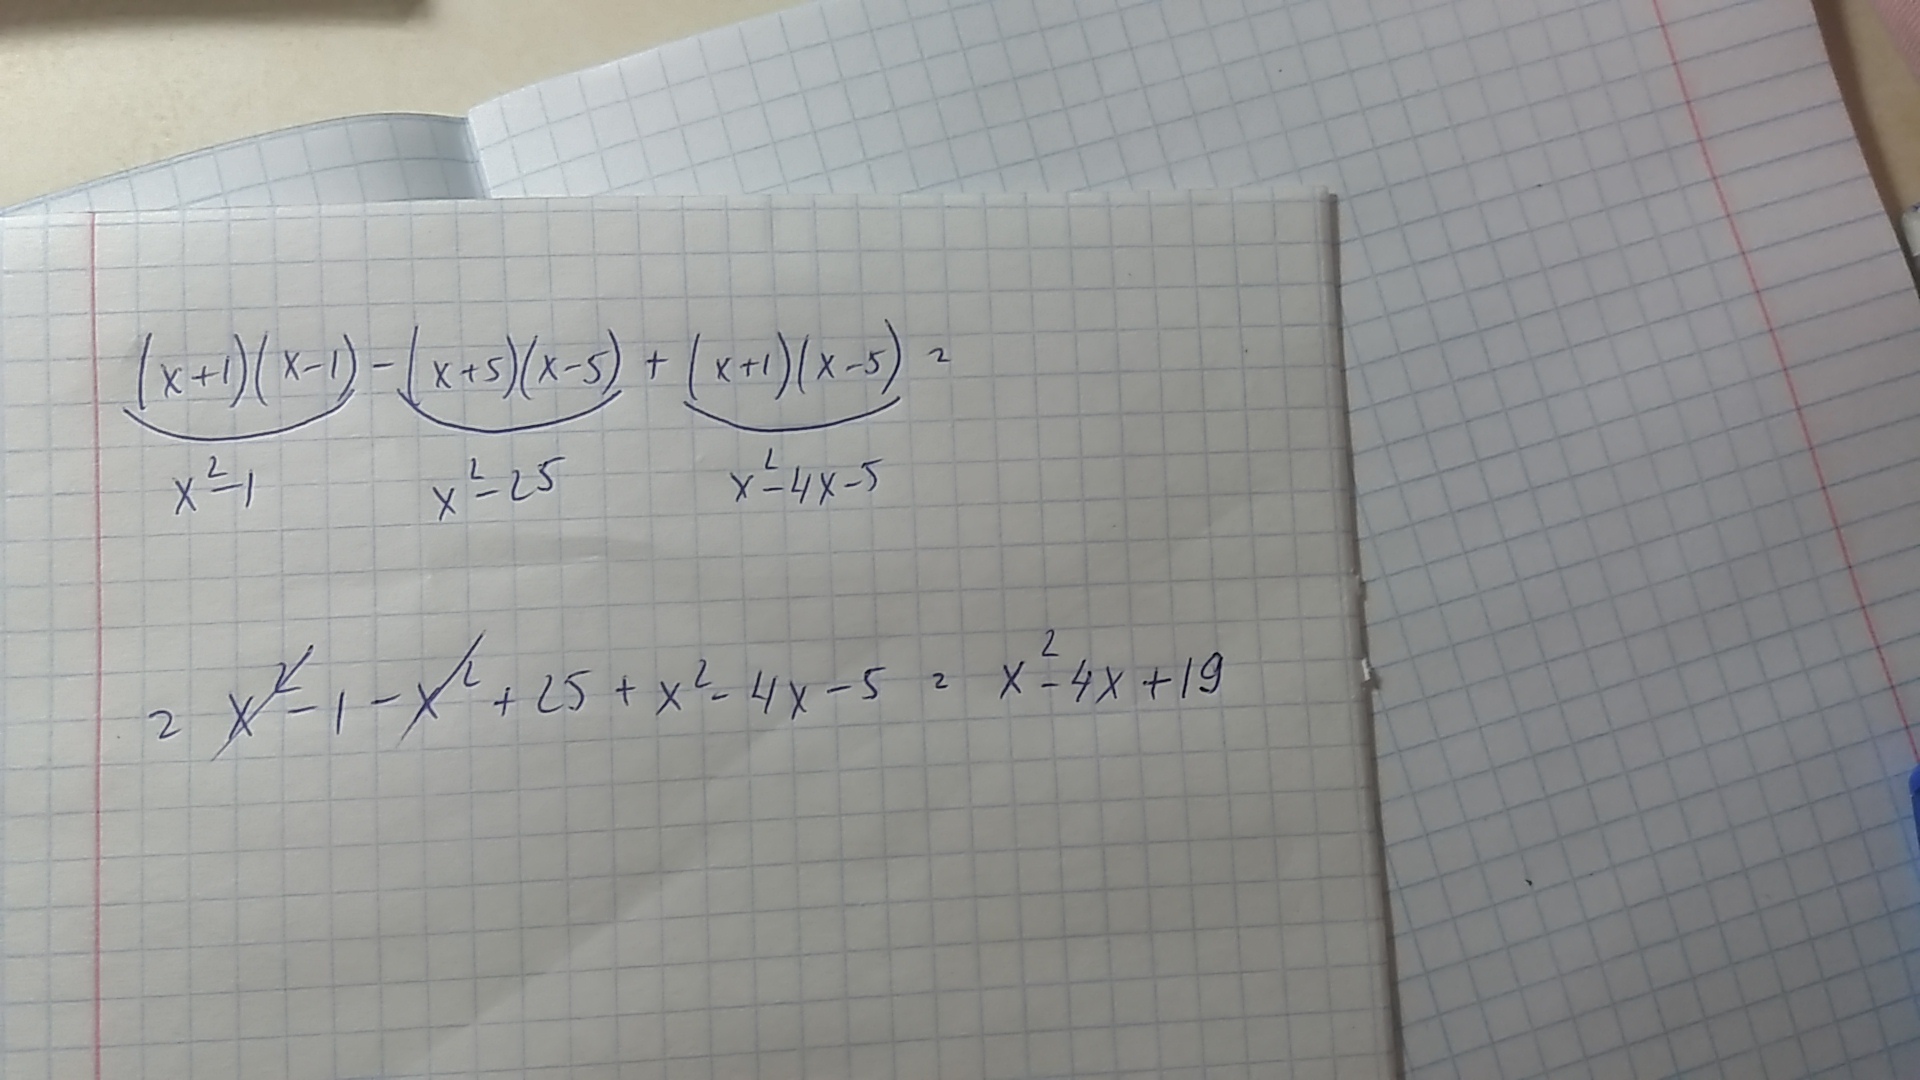 (x+1)(x-1) - (x+5)(x-5) + (x+1)(x-5) =
x²-1 x²-25 x²-4x-5
= x²-1-x²+25+x²-4x-5 = x²-4x+19